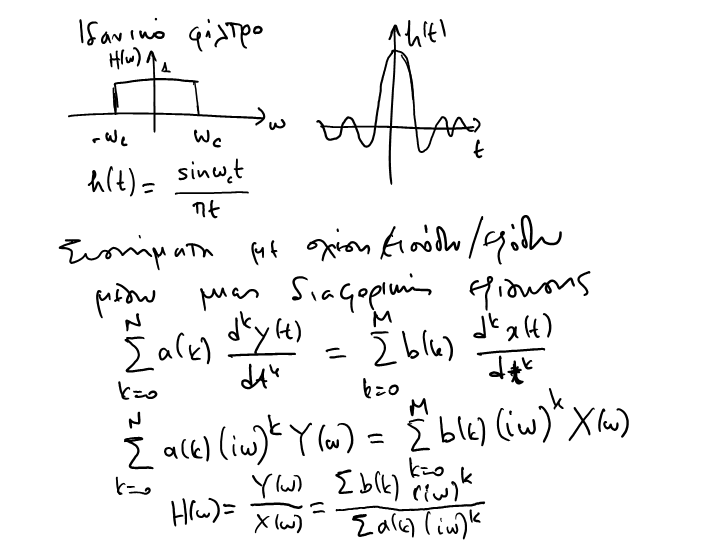 Ιδανικό φίλτρο
H(ω) 1 h(t)
-ωc ωc ω t
h(t) = sinωct / πt
Συστήματα με σχέση εισόδου/εξόδου
μέσω μιας διαφορικής εξίσωσης
∑_{k=0}^{N} a(k) d^k y(t)/dt^k = ∑_{k=0}^{M} b(k) d^k x(t)/dt^k
∑_{k=0}^{N} a(k) (iω)^k Y(ω) = ∑_{k=0}^{M} b(k) (iω)^k X(ω)
H(ω) = Y(ω)/X(ω) = ∑ b(k) (iω)^k / ∑ a(k) (iω)^k